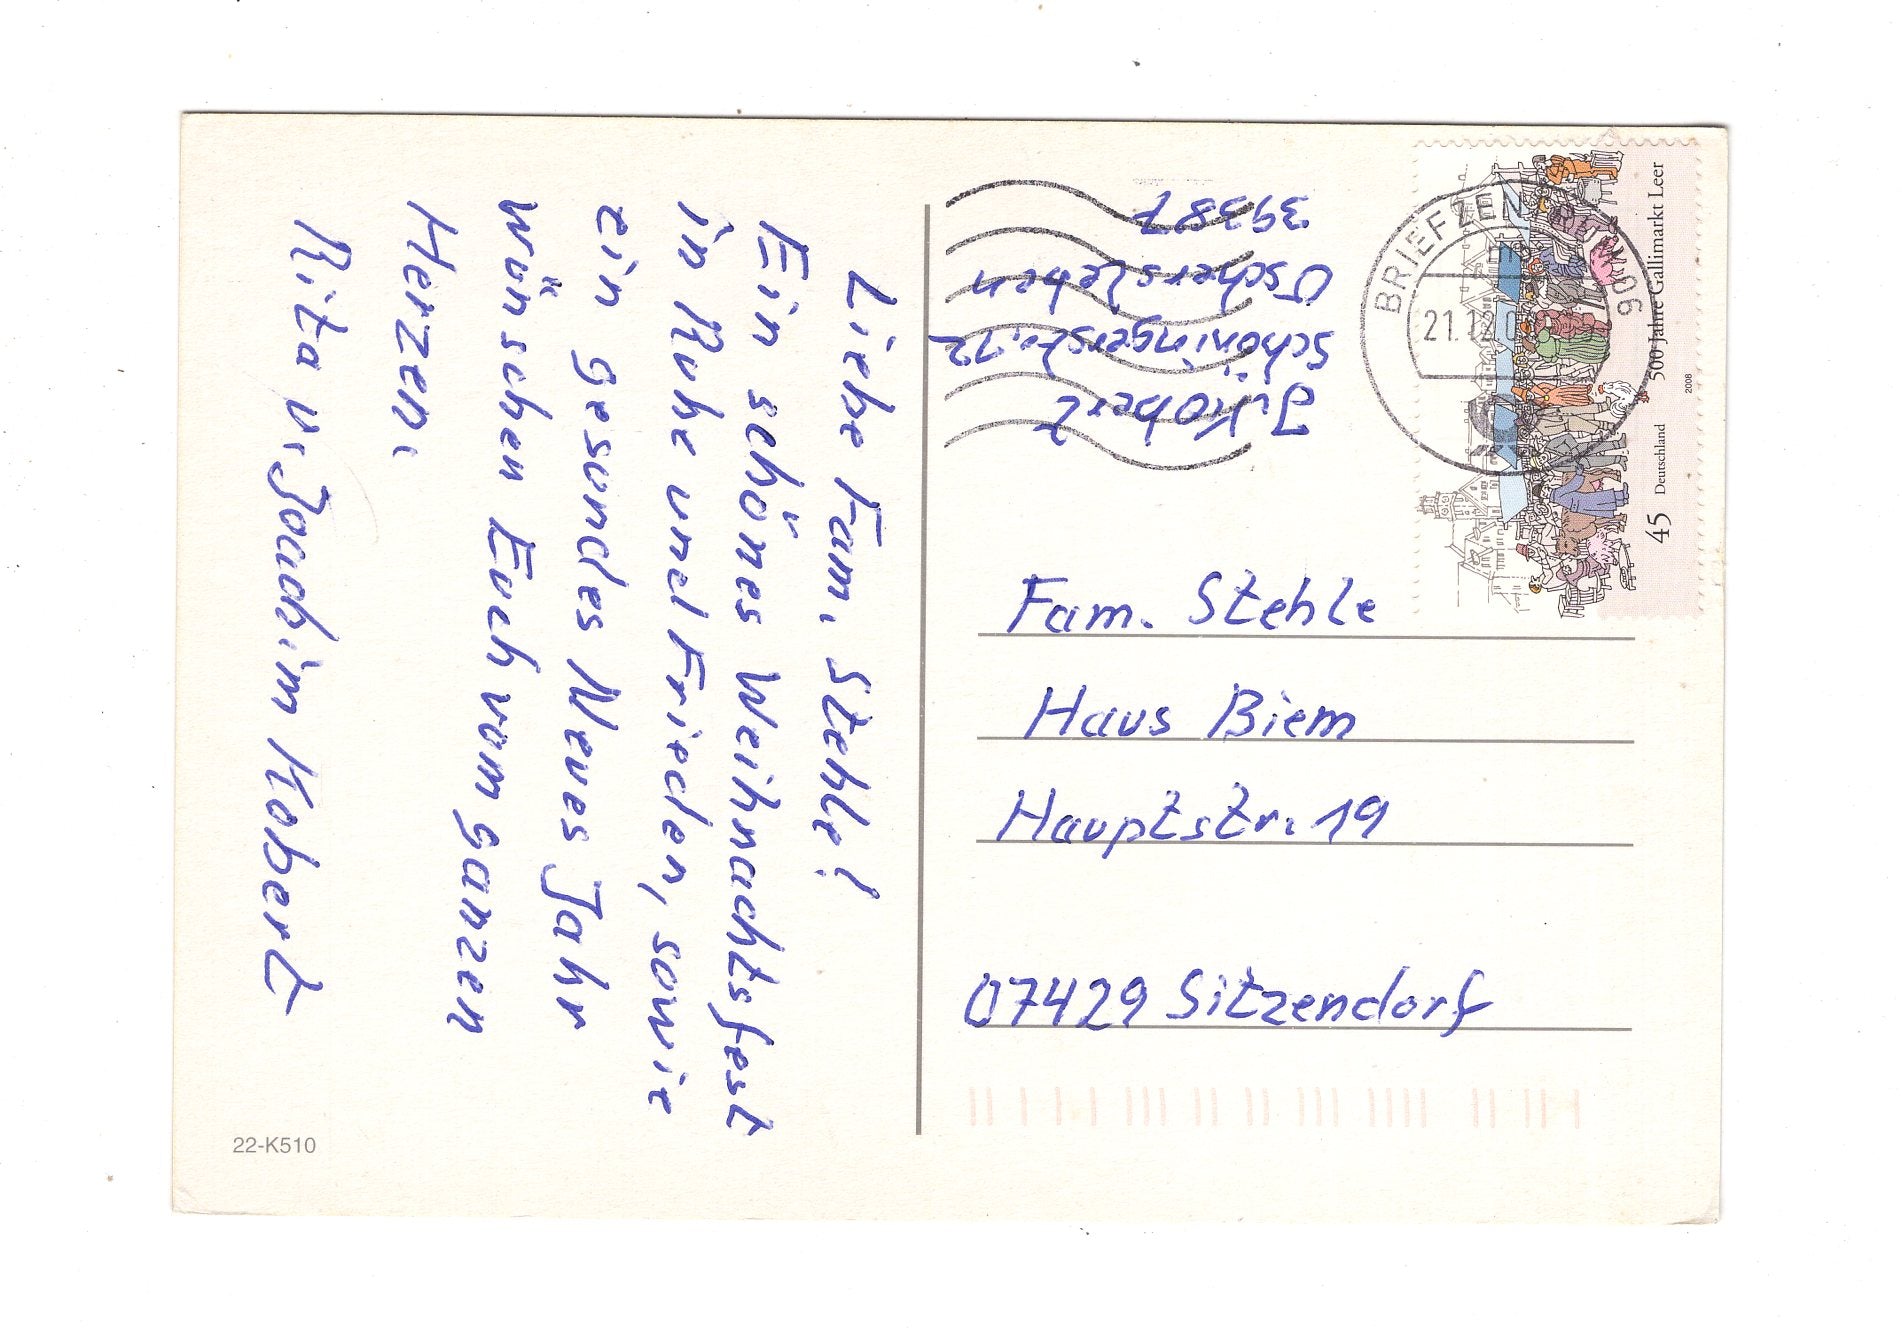 Liebe Fam. Stehle!
Ein schönes Weihnachtsfest
in Ruhe und Frieden, sowie
ein gesundes Neues Jahr
wünschen Euch vom ganzen
Herzen.
Rita u. Joachim Kobert
22-K510
J. Kobert
Schöningerstr. 12
Oschersleben
39387
BRIEFZENTRUM
21.12.0
500 Jahre Gallimarkt Leer
45 Deutschland 2008
Fam. Stehle
Haus Biem
Hauptstr. 19
07429 Sitzendorf